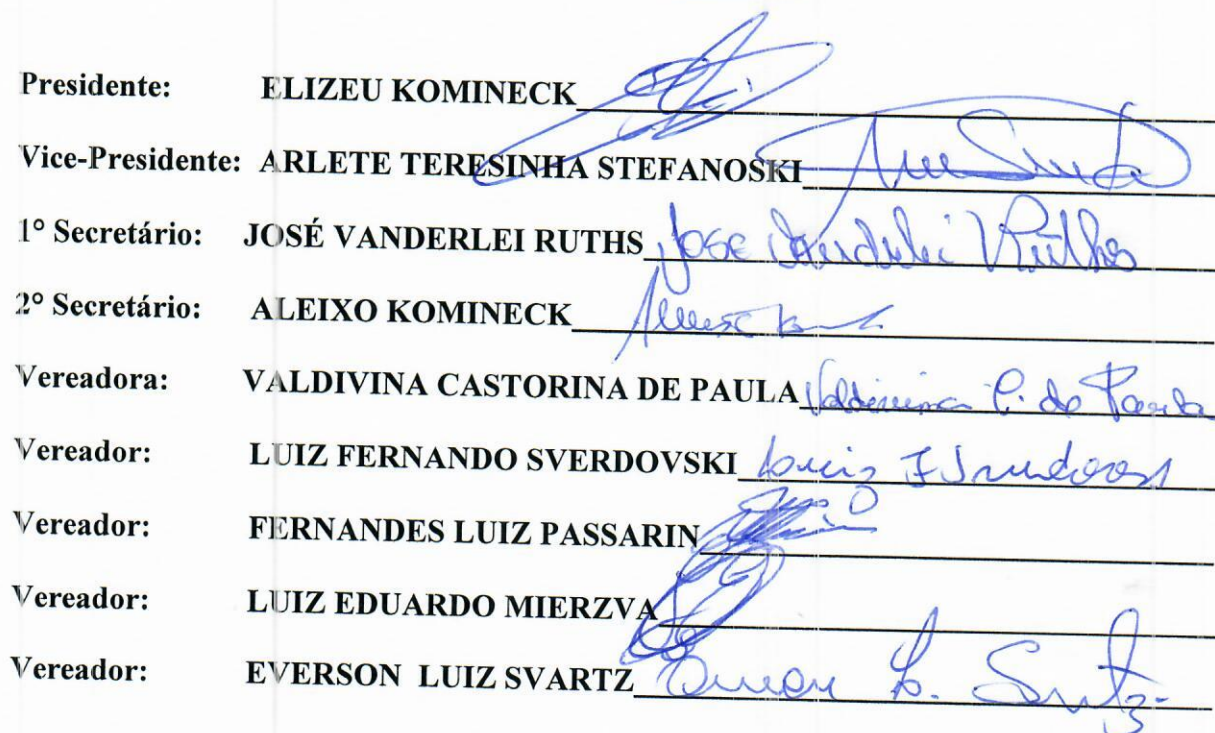 Presidente: ELIZEU KOMINECK
Vice-Presidente: ARLETE TERESINHA STEFANOSKI
1° Secretário: JOSÉ VANDERLEI RUTHS Jose Vanderlei Ruthes
2° Secretário: ALEIXO KOMINECK
Vereadora: VALDIVINA CASTORINA DE PAULA Valdivina C. de Paula
Vereador: LUIZ FERNANDO SVERDOVSKI Luiz F
Vereador: FERNANDES LUIZ PASSARIN
Vereador: LUIZ EDUARDO MIERZVA
Vereador: EVERSON LUIZ SVARTZ